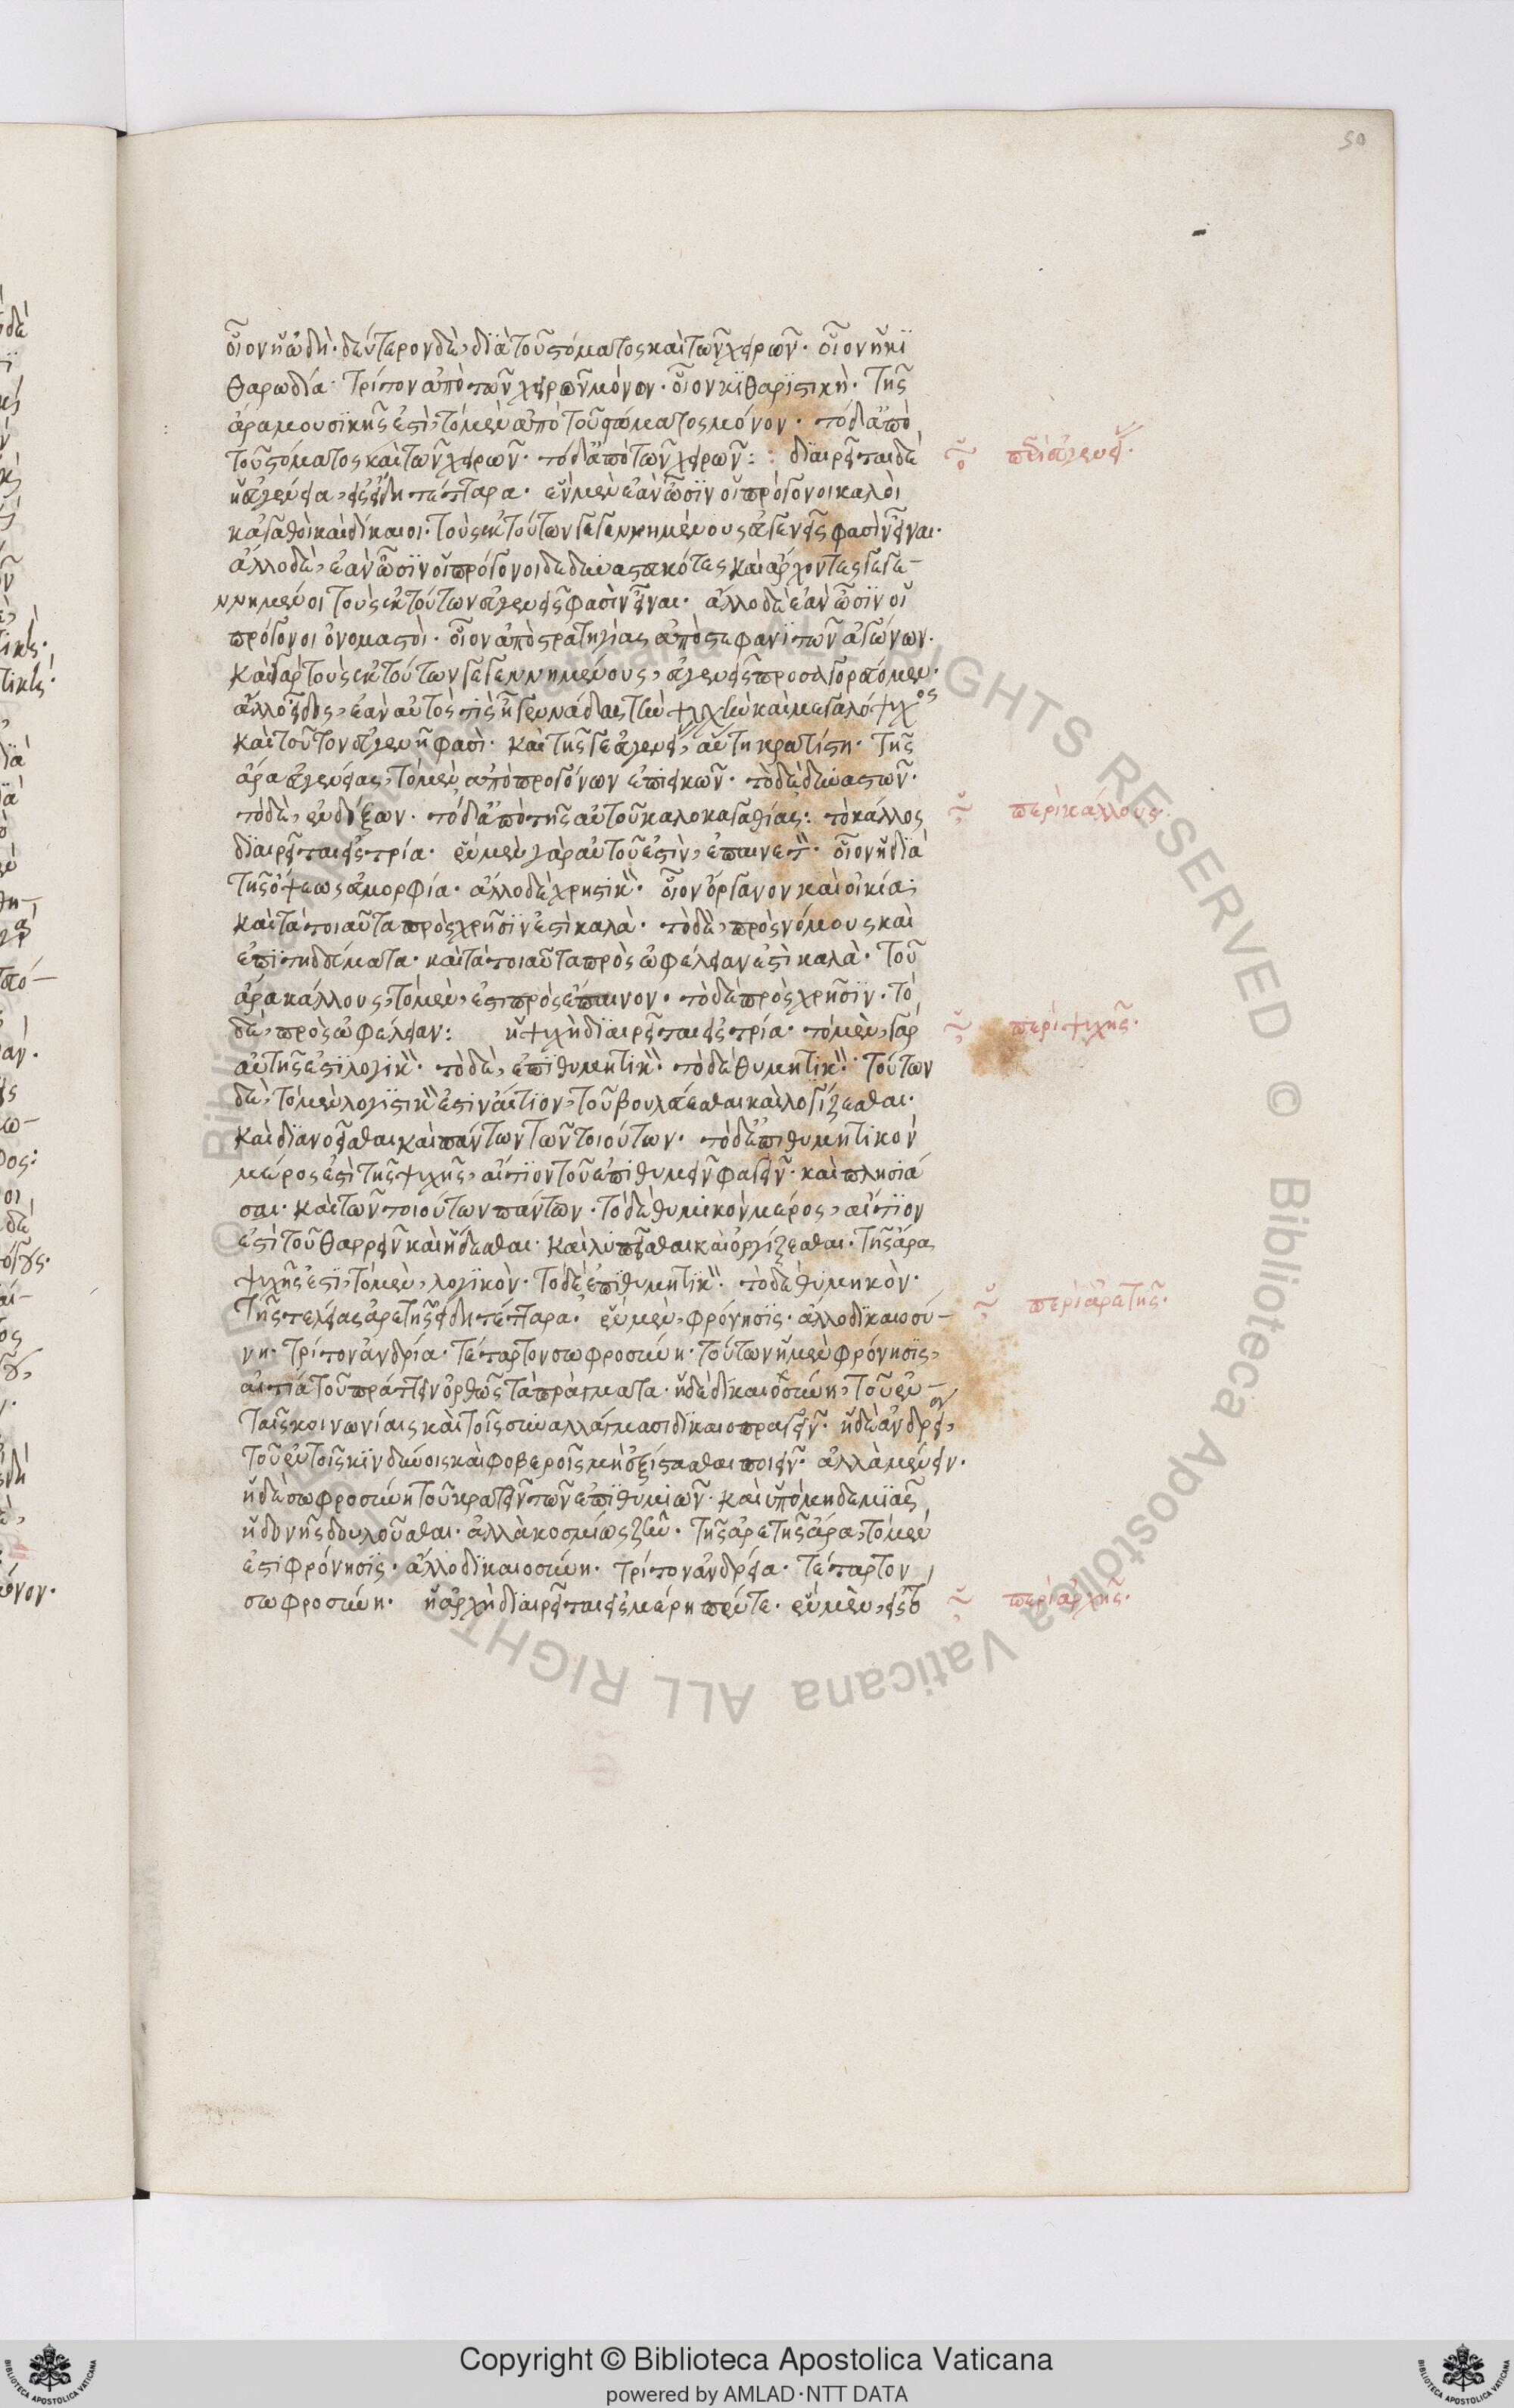 50
οἷον ἡ ὠδή· δεύτερον δὲ, διὰ τοῦ στόματος καὶ τῶν χειρῶν· οἷον ἡ κι
θαρωδία· τρίτον ἀπὸ τῶν χειρῶν μόνον· οἷον κιθαριστική· τῆς
ἄρα μουσικῆς ἐστὶ, τὸ μὲν ἀπὸ τοῦ στόματος μόνον· τὸ δ' ἀπὸ
τοῦ στόματος καὶ τῶν χειρῶν· τὸ δ' ἀπὸ τῶν χειρῶν: : διαιρεῖται δὲ
περὶ εὐγενεί
ἡ εὐγένεια, εἰς εἴδη τέτταρα· ἓν μὲν ἐὰν ὦσιν οἱ πρόγονοι καλοὶ
κἀγαθοὶ καὶ δίκαιοι· τοὺς ἐκ τούτων γεγεννημένους εὐγενεῖς φασὶν εἶναι·
ἄλλο δὲ, ἐὰν ὦσιν οἱ πρόγονοι δεδυναστευκότες καὶ ἄρχοντες γεγε-
ννημένοι τοὺς ἐκ τούτων εὐγενεῖς φασὶν εἶναι· ἄλλο δὲ ἐὰν ὦσιν οἱ
πρόγονοι ὀνομαστοὶ· οἷον ἀπὸ στρατηγίας ἀπὸ στεφανιτῶν ἀγώνων·
καὶ γὰρ τοὺς ἐκ τούτων γεγεννημένους, εὐγενεῖς προσαγορεύομεν·
ἄλλο εἶδος, ἐὰν αὐτὸς τὶς ἦ γεννάδας τὴν ψυχὴν καὶ μεγαλόψυχος
καὶ τοῦτον εὐγενῆ φασὶ· καὶ τῆς γε εὐγενεί, αὕτη κρατίστη· τῆς
ἄρα εὐγενείας, τὸ μὲν ἀπὸ προγόνων ἐπιεικῶν· τὸ δὲ δυναστῶν·
τὸ δὲ, ἐνδόξων· τὸ δ' ἀπὸ τῆς αὐτοῦ καλοκαγαθίας: τὸ κάλλος
περὶ κάλλους·
διαιρεῖται εἰς τρία· ἓν μὲν γὰρ αὐτοῦ ἐστὶν, ἐπαινετ· οἷον ἡ διὰ
τῆς ὄψεως εὐμορφία· ἄλλο δὲ χρηστικ· οἷον ὄργανον καὶ οἰκία·
καὶ τὰ τοιαῦτα πρὸς χρῆσιν ἐστὶ καλὰ· τὸ δὲ, πρὸς νόμους καὶ
ἐπιτηδεύματα· καὶ τὰ τοιαῦτα πρὸς ὠφέλειαν ἐστὶ καλὰ· τοῦ
ἄρα κάλλους, τὸ μὲν, ἐστι πρὸς ἔπαινον· τὸ δὲ πρὸς χρῆσιν· τὸ
δὲ, πρὸς ὠφέλειαν: ἡ ψυχὴ διαιρεῖται εἰς τρία· τὸ μὲν, γὰρ
περὶ ψυχῆς·
αὐτῆς ἐστὶ λογικ· τὸ δὲ, ἐπιθυμητικ· τὸ δὲ θυμητικ· τούτων
δὲ, τὸ μὲν λογιστικ ἐστιν αἴτιον, τοῦ βουλεύεσθαι καὶ λογίζεσθαι·
καὶ διανοεῖσθαι καὶ πάντων τῶν τοιούτων· τὸ δ' ἐπιθυμητικὸν
μέρος ἐστὶ τῆς ψυχῆς, αἴτιον τοῦ ἐπιθυμεῖν φαγεῖν· καὶ πλησιά
σαι· καὶ τῶν τοιούτων πάντων· τὸ δὲ θυμικὸν μέρος, αἴτιον
ἐστὶ τοῦ θαρρεῖν καὶ ἥδεσθαι· καὶ λυπεῖσθαι καὶ ὀργίζεσθαι· τῆς ἄρα
ψυχῆς ἐστὶ, τὸ μὲν, λογικὸν· τὸ δὲ ἐπιθυμητικ· τὸ δὲ θυμηκὸν·
τῆς τελείας ἀρετῆς εἴδη τέτταρα· ἓν μὲν, φρόνησις· ἄλλο δικαιοσύ-
περὶ ἀρετῆς·
νη· τρίτον ἀνδρία· τέταρτον σωφροσύνη· τούτων ἡ μὲν φρόνησις,
αἰτία τοῦ πράττειν ὀρθῶς τὰ πράγματα· ἡ δὲ δικαιοσύνη, τοῦ ἐν
ταῖς κοινωνίαις καὶ τοῖς συναλλάγμασι δικαιοπραγεῖν· ἡ δὲ ἀνδρεί,
τοῦ ἐν τοῖς κινδύνοις καὶ φοβεροῖς μὴ ἐξίστασθαι ποιεῖν· ἀλλὰ μένειν·
ἡ δὲ σωφροσύνη τοῦ κρατεῖν τῶν ἐπιθυμιῶν· καὶ ὑπὸ μηδεμιᾶς
ἡδονῆς δουλοῦσθαι· ἀλλὰ κοσμίως ζῆν· τῆς ἀρετῆς ἄρα, τὸ μὲν
ἐστὶ φρόνησις· ἄλλο δικαιοσύνη· τρίτον ἀνδρεία· τέταρτον
σωφροσύνη· ἡ ἀρχὴ διαιρεῖται εἰς μέρη πέντε· ἓν μὲν,
περὶ ἀρχῆς·
© Biblioteca Apostolica Vaticana ALL RIGHTS RESERVED
Copyright © Biblioteca Apostolica Vaticana
powered by AMLAD·NTT DATA